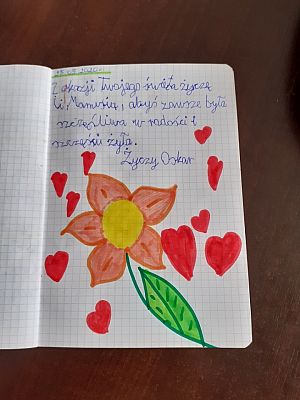 Z okazji Twojego święta życzę
Ci Mamusiu, abyś zawsze była
szczęśliwa w radości i
szczęściu żyła.
Życzy Oskar